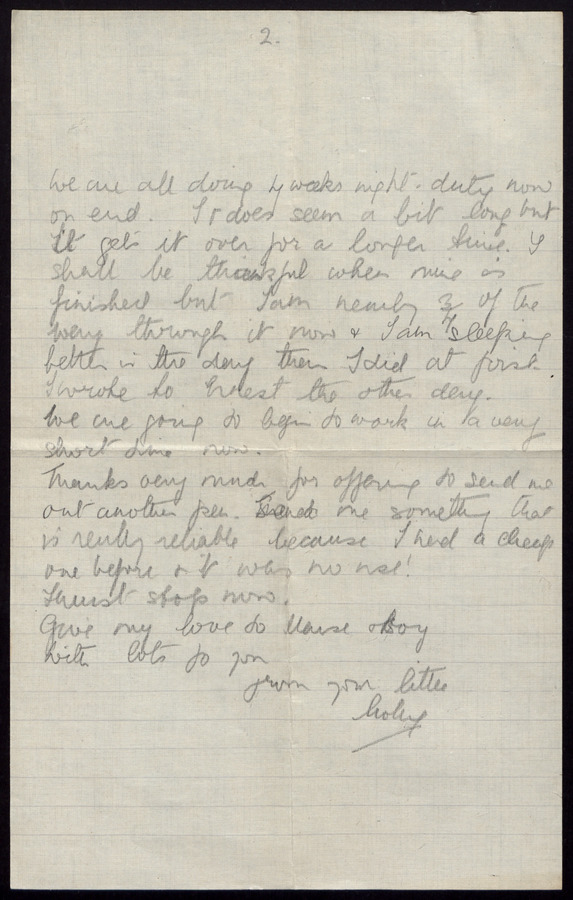 2.
We are all doing 4 weeks night-duty now
on end. It does seem a bit long but
it gets it over for a longer time. I
shall be thankful when mine is
finished but I am nearly 3/4 of the
way through it now & I am sleeping
better in the day than I did at first.
I wrote to Ernest the other day.
We are going to begin to work in a very
short time now.
Thanks very much for offering to send me
out another pen. Send me something that
is really reliable because I had a cheap
one before & it was no use!
I must stop now.
Give my love to & Boy
with lots to you
from your little